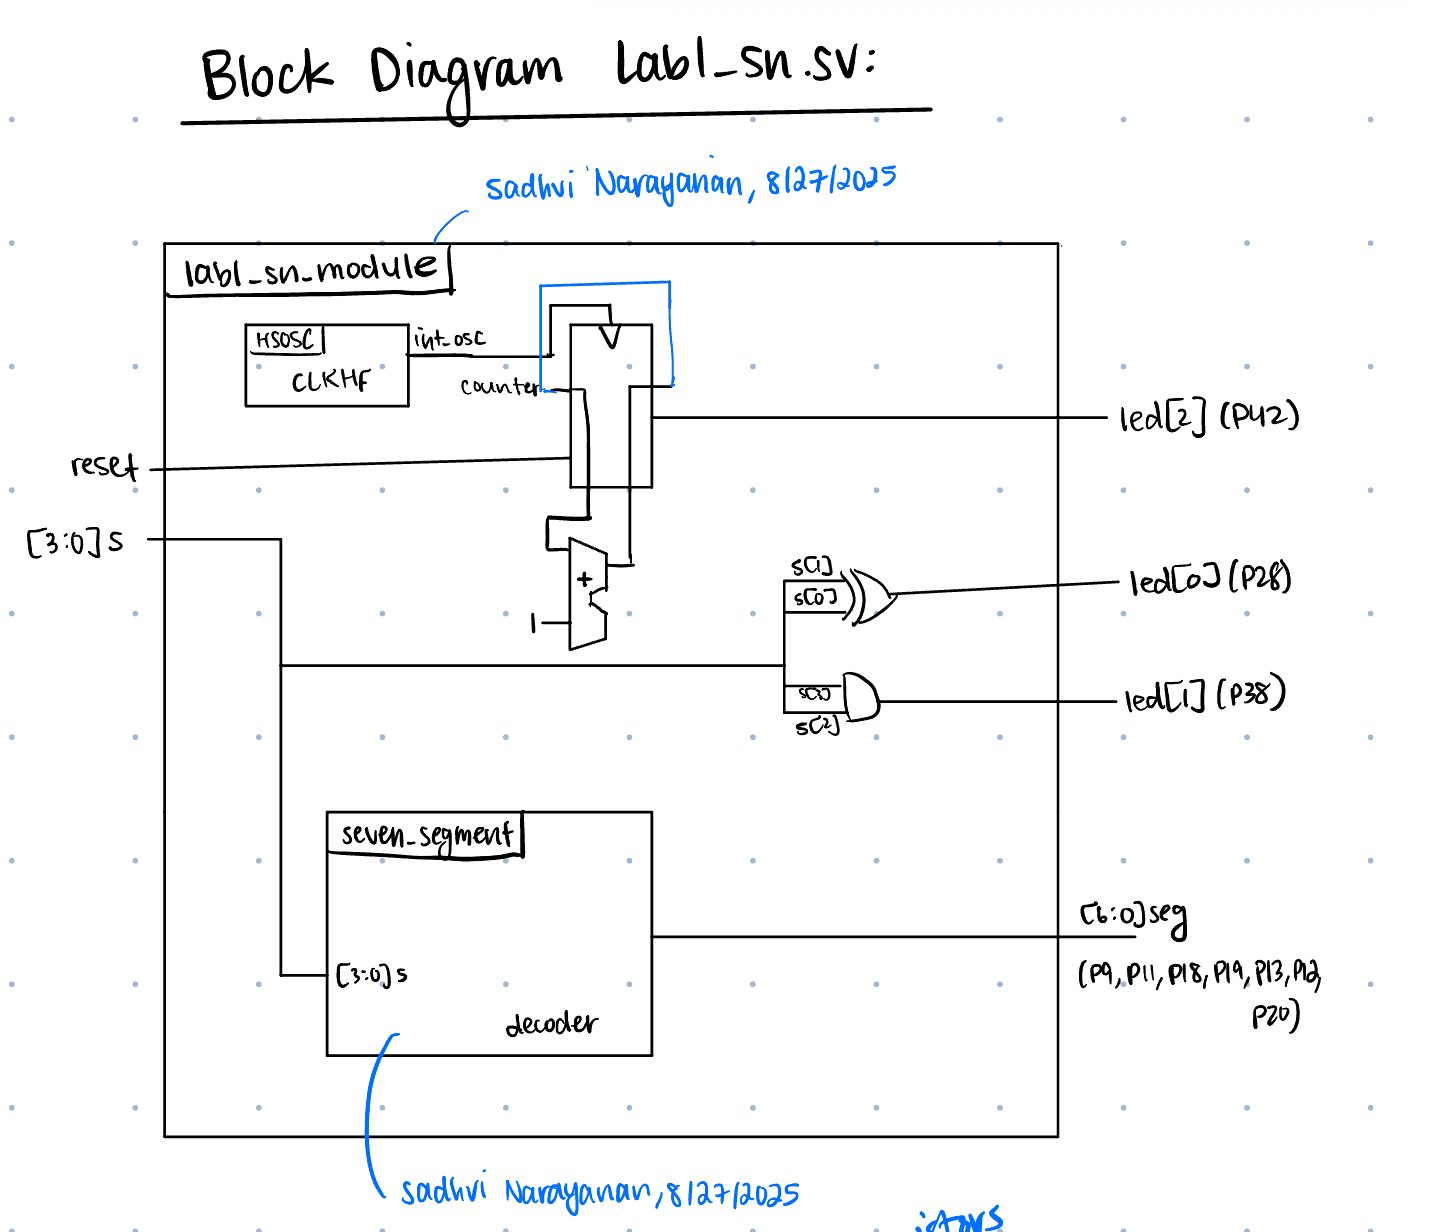 Block Diagram lab1_sn.sv:
sadhvi Narayanan, 8/27/2025
lab1_sn_module
HSOSC
CLKHF
int_osc
counter
led[2] (P42)
reset
[3:0] s
+
1
s[1]
s[0]
led[0] (P28)
s[3]
s[2]
led[1] (P38)
seven_segment
[3:0] s
decoder
[6:0] seg
(P9, P11, P18, P19, P13, P12,
P20)
sadhvi Narayanan, 8/27/2025